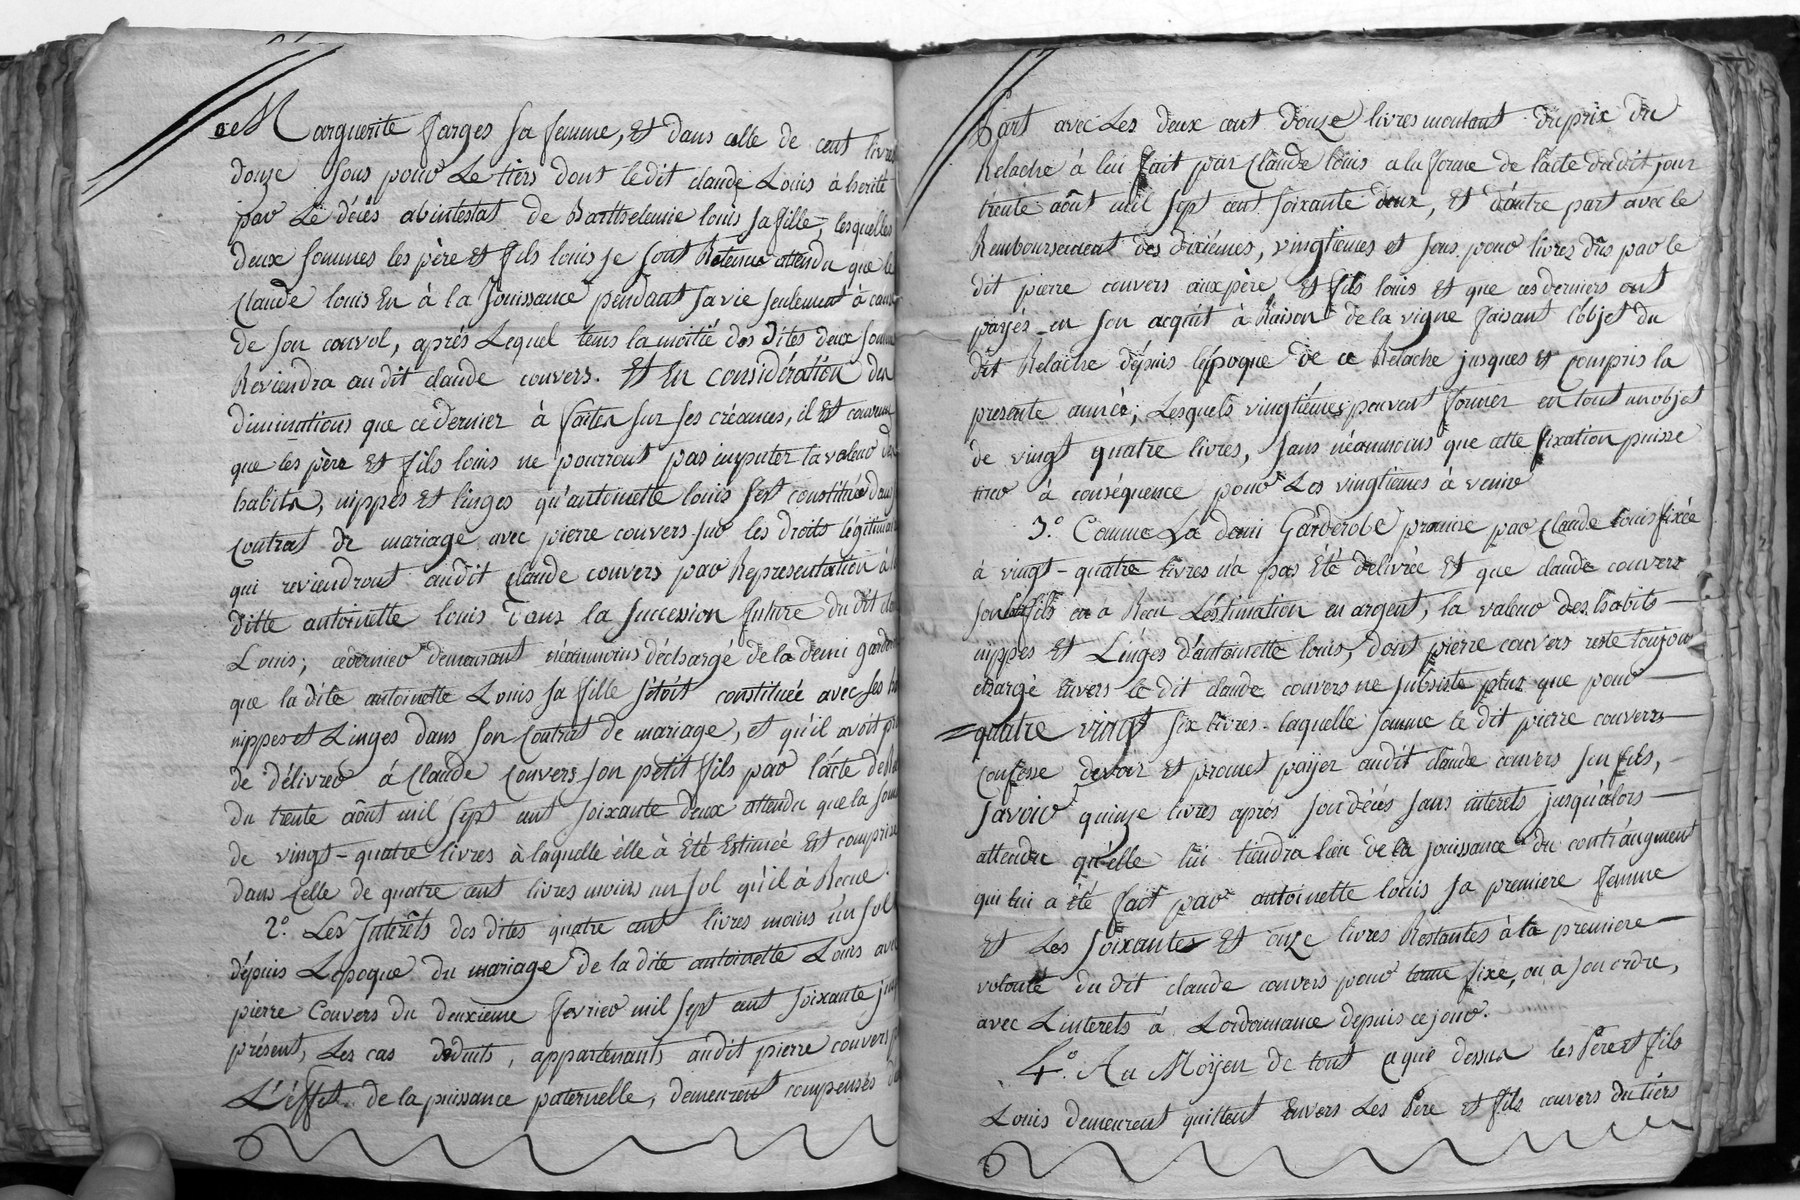 de Marguerite farges sa femme, Et dans celle de cent livres
douze sous pour Le tiers dont ledit claude Louis à herité
par Le décés abintestat de Barthelemie louis sa fille, lesquelles
deux sommes les père et fils louis se sont Retenue attendu que le
Claude louis En à la Jouissance pendant sa vie seulement à cause
de son convol, aprés Lequel tems la moitié des dites deux som
Reviendra au dit claude couvers. Et En considération du
diminutions que ce dernier à faites sur ses créances, il Est convenu
que les père Et fils louis ne pourront pas imputer la valeur des
habits, nippes et linges qu'antoinette louis s'est constitué dans
contrat de mariage avec pierre couvers sur les droits légitimai
qui reviendront audit Claude couvers par Representation à l
ditte antoinette louis dans la succession future du dit cla
Louis; cedernier demeurant néanmoins déchargé de la demi garde
que la dite antoinette Louis sa fille s'étoit constituée avec ses ha
nippes et Linges dans son Contrat de mariage, et qu'il avoit pr
de délivrer à Claude Couvers son petit fils par l'acte de
du trente aôut mil sept cent soixante deux attendu que la som
de vingt-quatre livres à laquelle élle à été Estimée Est comprise
dans Celle de quatre cent livres moins un sol qu'il à Recue.
2°. Les Interêts des dites quatre cent livres moins un sol
dépuis Lepoque du mariage de la dite antoinette Louis avec
pierre Couvers du deuxieme fevrier mil sept cent soixante jus
présent, Les cas déduits, appartenants audit pierre couvers
L'éffet de la puissance paternelle, demeurent compensés d
Part avec Les deux cent douze livres montant du prix du
Relache à lui fait par Claude louis a la forme de l'acte dudit jour
trente aôut mil sept cent soixante deux, Et d'autre part avec le
Remboursement des dixiémes, vingtiemes et sous pour livres dûs par le
dit pierre couvers aux père Et fils louis Et que ces derniers ont
payés en son acquit à Raison de la vigne faisant l'objet du
dit Relache dépuis lépoque de ce Relache jusques et compris la
presente année; Lesquels vingtiémes peuvent former en tout un objet
de vingt quatre livres, sans néanmoins que cette fixation puisse
tirer à conséquence pour Les vingtiemes à venir
3°. Comme La demi Garderobe promise par Claude Louis fixée
à vingt-quatre livres n'a pas Été délivrée Et que claude couvers
son fils en a Recu L'estimation en argent, la valeur des habits
nippes Et Linges d'antoinette louis, dont pierre couvers reste toujour
chargé Envers le dit claude couvers ne subsiste plus que pour
quatre vingt six livres. laquelle somme le dit pierre couvers
Confesse devoir et promet payer audit claude couvers son fils,
savoir quinze livres apres son décés sans interets jusqu'alors
attendu qu'elle lui tiendra lieu de la jouissance du contr'augment
qui lui a été fait par antoinette louis sa premiere femme
Et Les soixantes Et onze livres Restantes à la premiere
volonté du dit claude couvers pour terme fixe, ou a son ordre,
avec L'interets à Lordonnance depuis ce jour.
4°. Au Moÿen de tout ce que dessus les Pere et fils
Louis demeurent quittent Envers Les Pere Et fils couvers du tiers